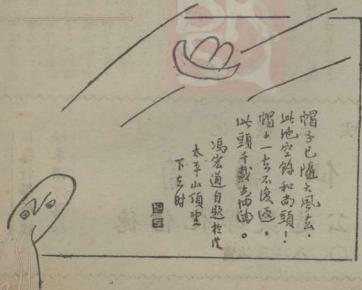 帽子已隨大風去，
此地空餘和尚頭！
帽子一去不復返，
此頭千載光油油。
馮宏道自題於從
太平山頂望
下之時